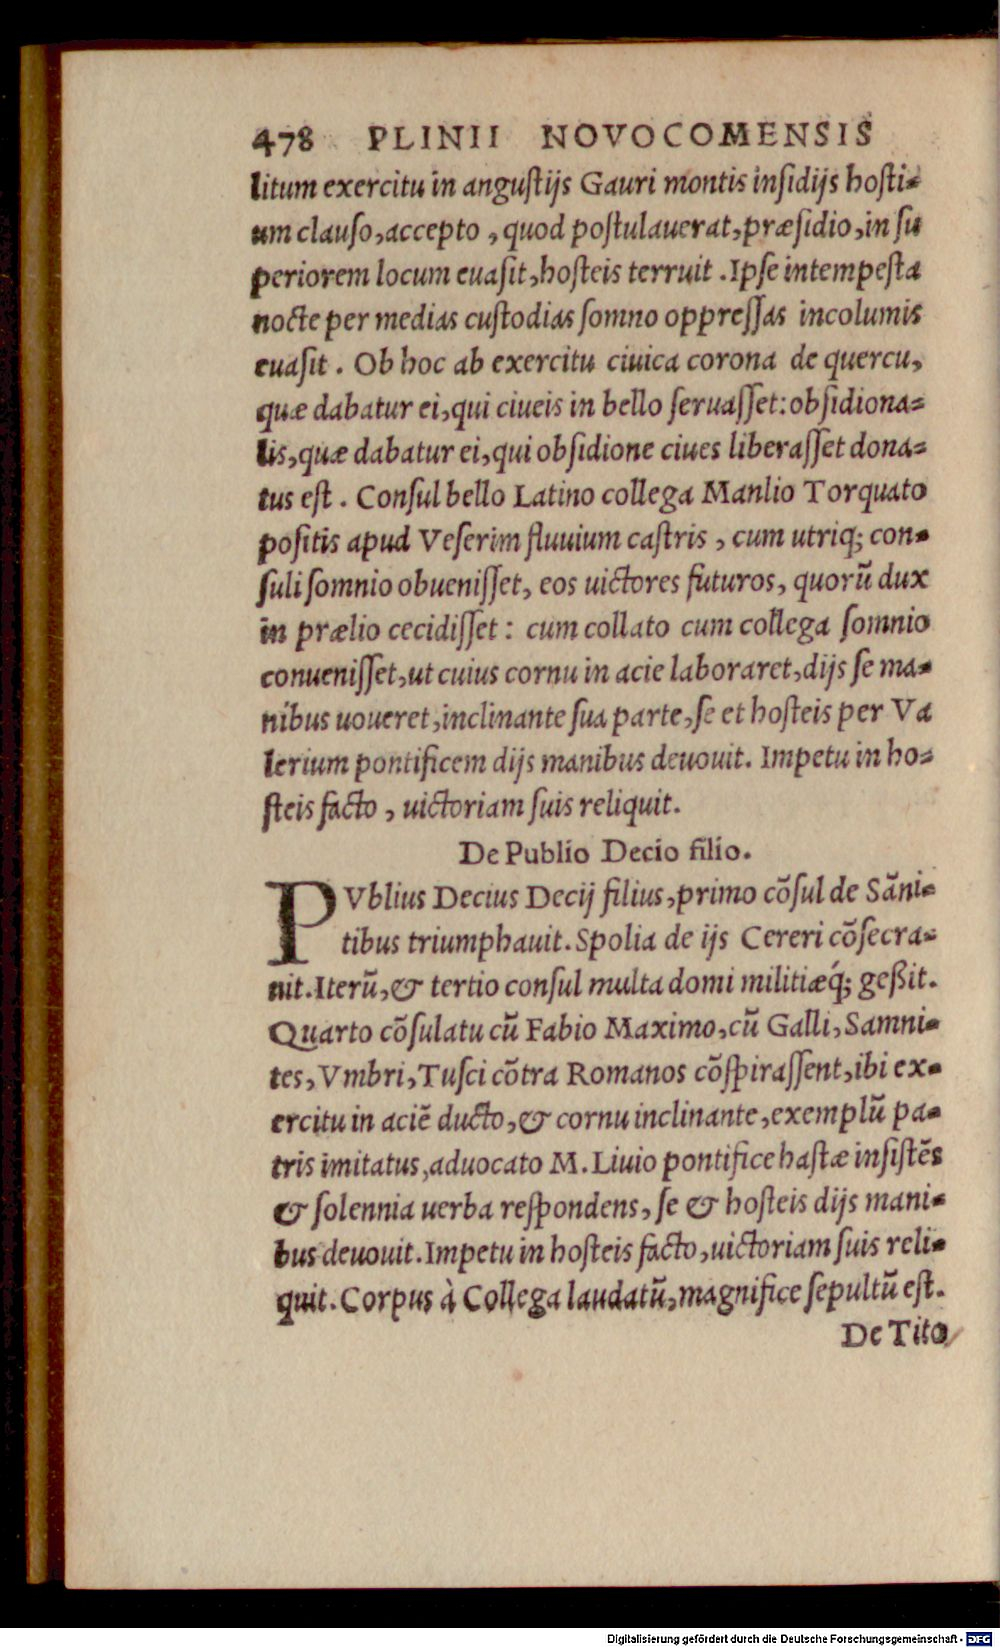 478 PLINII NOVOCOMENSIS
litum exercitu in anguſtijs Gauri montis inſidijs hoſti-
um clauſo, accepto, quod poſtulauerat, præſidio, in ſu
periorem locum euaſit, hoſteis terruit. Ipſe intempeſta
nocte per medias cuſtodias ſomno oppreſſas incolumis
euaſit. Ob hoc ab exercitu ciuica corona de quercu,
quæ dabatur ei, qui ciueis in bello ſeruaſſet: obſidiona-
lis, quæ dabatur ei, qui obſidione ciues liberaſſet dona-
tus eſt. Conſul bello Latino collega Manlio Torquato
poſitis apud Veſerim fluuium caſtris, cum utriq; con-
ſuli ſomnio obueniſſet, eos uictores futuros, quorũ dux
in prælio cecidiſſet: cum collato cum collega ſomnio
conueniſſet, ut cuius cornu in acie laboraret, dijs ſe ma-
nibus uoueret, inclinante ſua parte, ſe et hoſteis per Va
lerium pontificem dijs manibus deuouit. Impetu in ho-
ſteis facto, uictoriam ſuis reliquit.
De Publio Decio filio.
PVblius Decius Decij filius, primo cõſul de Sãni-
tibus triumphauit. Spolia de ijs Cereri cõſecra-
uit. Iterũ, & tertio conſul multa domi militiæq́; geßit.
Quarto cõſulatu cũ Fabio Maximo, cũ Galli, Samni-
tes, Vmbri, Tuſci cõtra Romanos cõſpiraſſent, ibi ex-
ercitu in aciẽ ducto, & cornu inclinante, exemplũ pa-
tris imitatus, aduocato M. Liuio pontifice haſtæ inſiſtẽs
& ſolennia uerba reſpondens, ſe & hoſteis dijs mani-
bus deuouit. Impetu in hoſteis facto, uictoriam ſuis reli-
quit. Corpus à Collega laudatũ, magnifice ſepultũ eſt.
De Tito
Digitalisierung gefördert durch die Deutsche Forschungsgemeinschaft - DFG